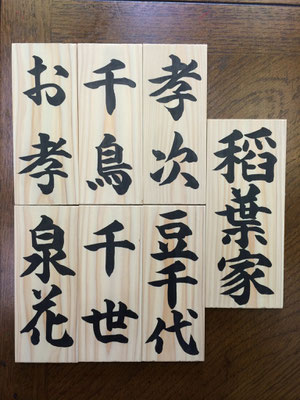 稲葉家
孝次
千鳥
お孝
豆千代
千世
泉花